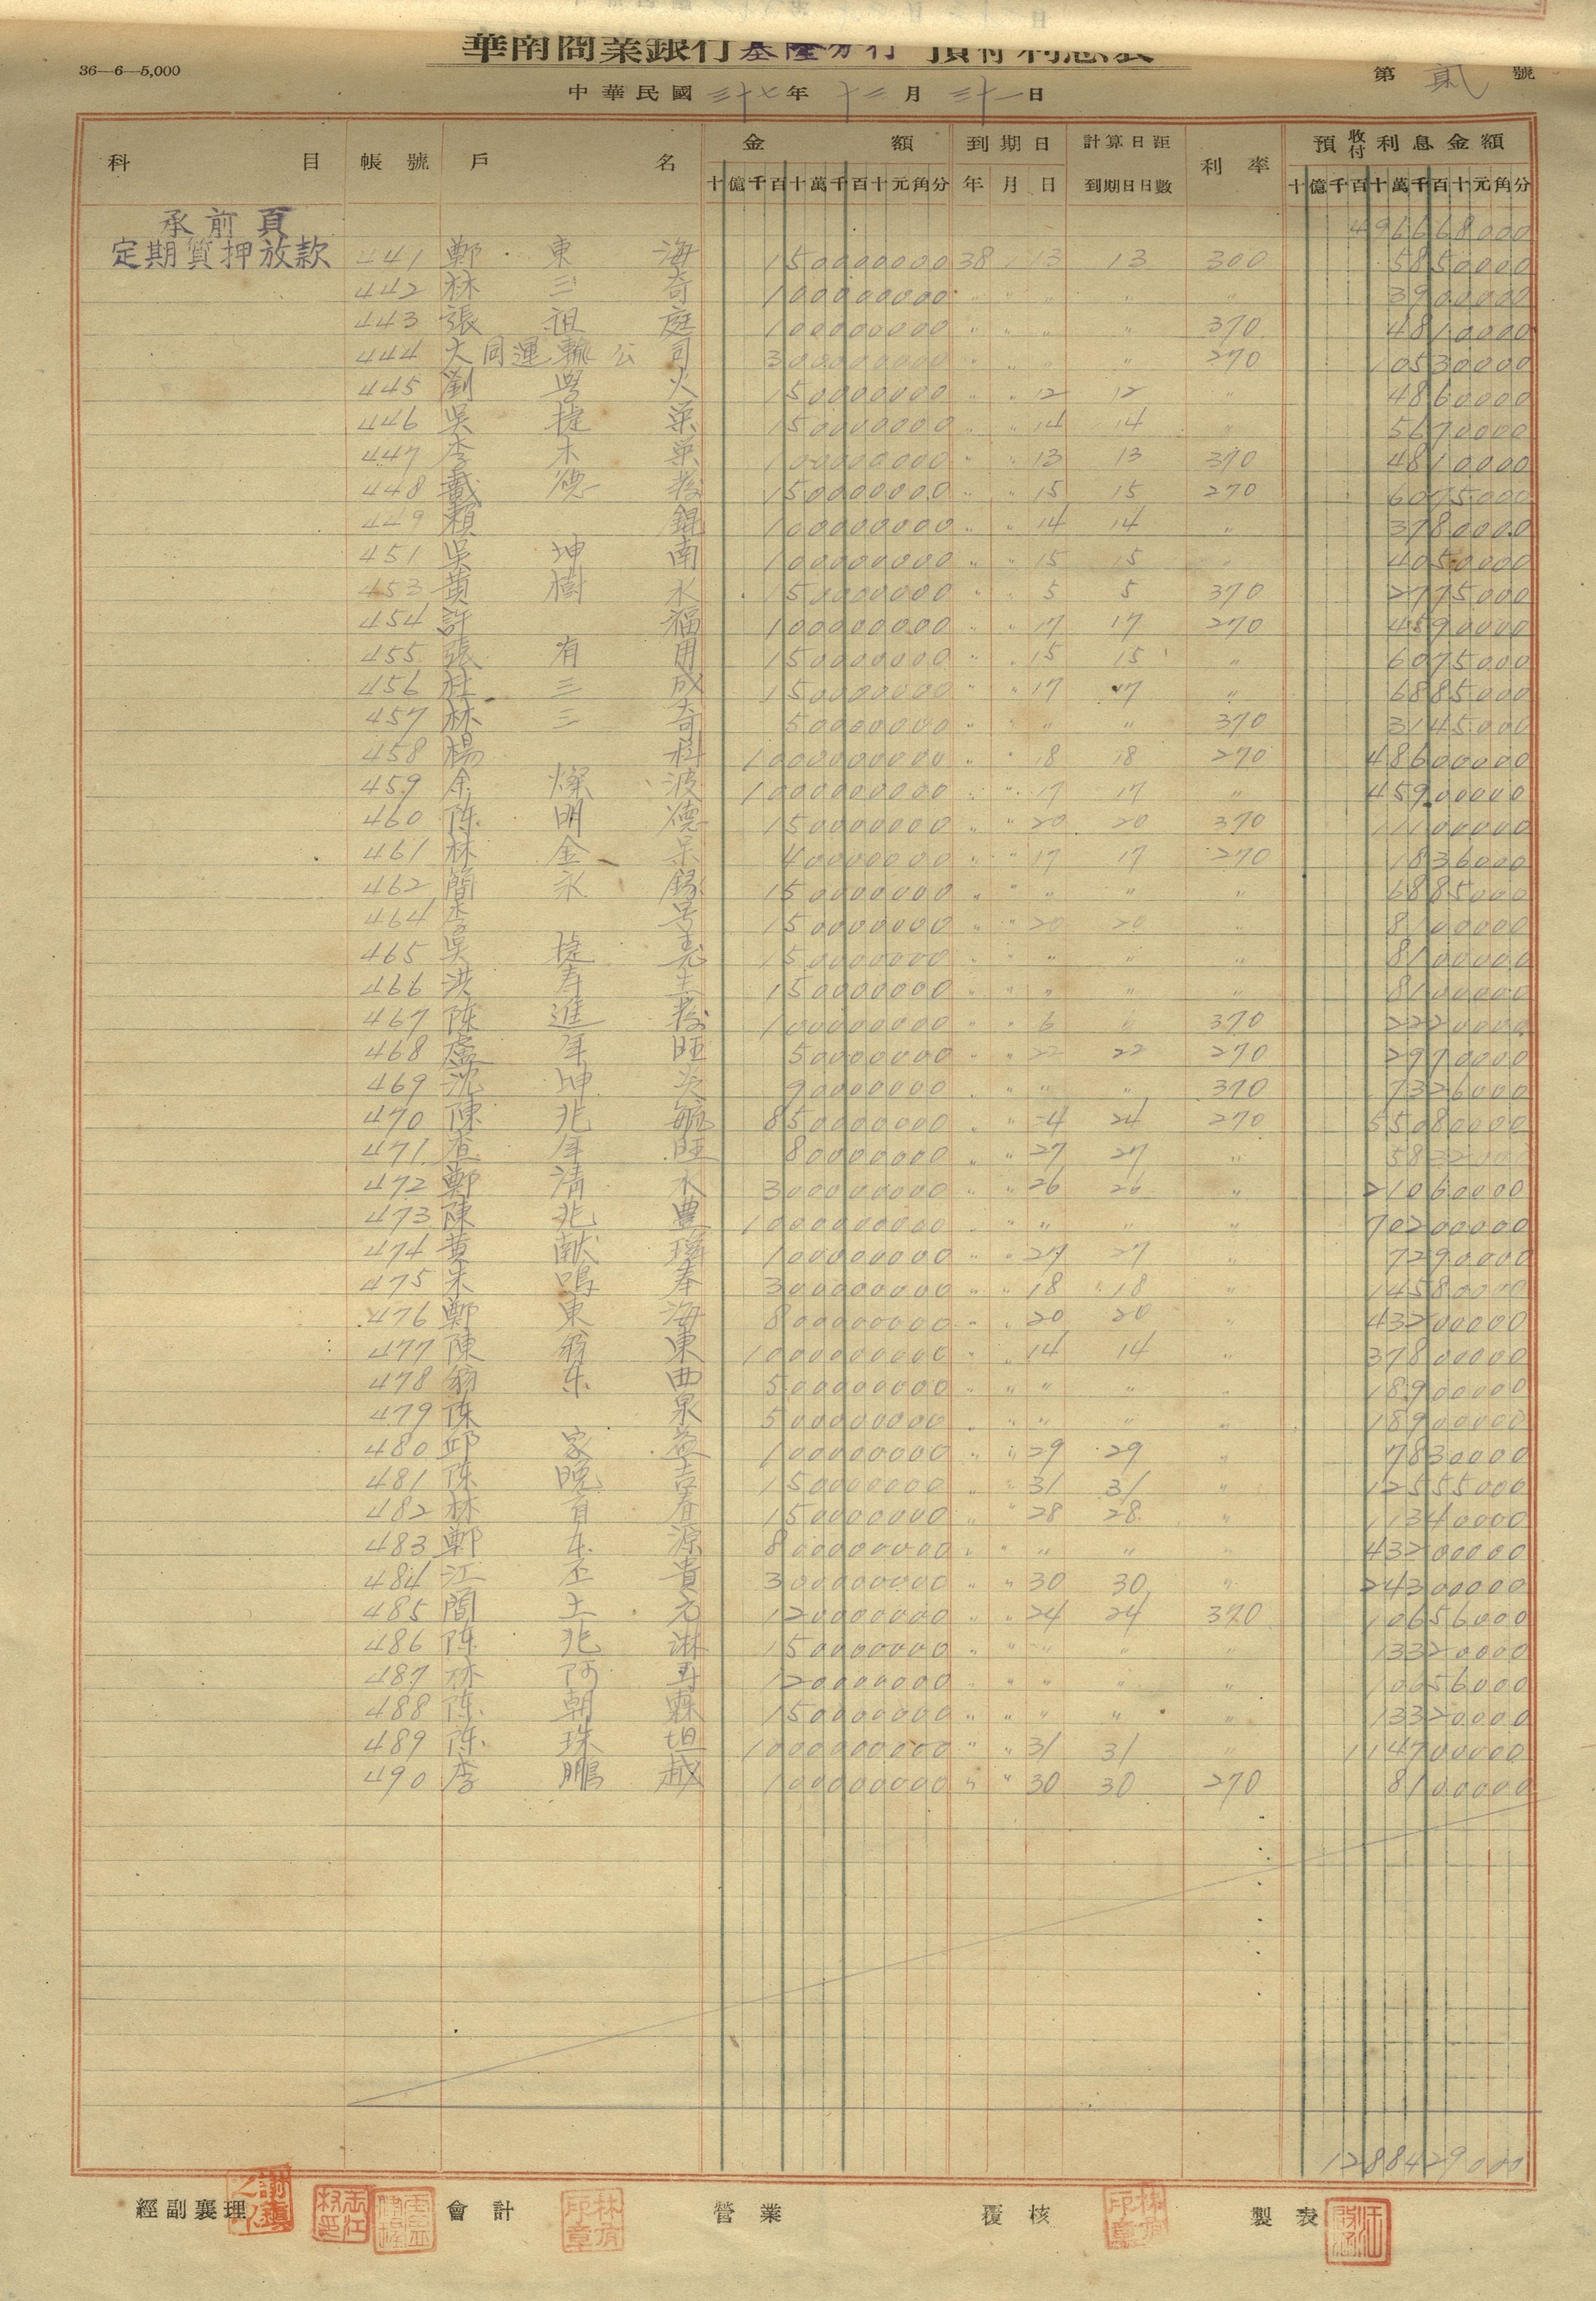 華南商業銀行基隆分行 預付利息表
36—6—5,000
第 貳 號
中華民國三十七年十二月三十一日
科目 帳號 戶名 金額 到期日 計算日距到期日日數 利率 預收付利息金額
十億千百十萬千百十元角分 年月日 十億千百十萬千百十元角分
承前頁 496668000
定期質押放款 441 鄭東海 150000000 38 1 13 13 300 5850000
442 林三奇 100000000 〃 〃 〃 〃 〃 3900000
443 張祖庭 100000000 〃 〃 〃 〃 370 4810000
444 大同運輸公司 300000000 〃 〃 〃 〃 270 10530000
445 劉火 150000000 〃 〃 12 12 〃 4860000
446 吳捷 150000000 〃 〃 14 14 〃 5670000
447 李木 100000000 〃 〃 13 13 370 4810000
448 戴德 150000000 〃 〃 15 15 270 6075000
449 賴錕 100000000 〃 〃 14 14 〃 3780000
451 吳坤南 100000000 〃 〃 15 15 〃 4050000
453 黃樹水 150000000 〃 〃 5 5 370 2775000
454 許福 100000000 〃 〃 17 17 270 4590000
455 張有用 150000000 〃 〃 15 15 〃 6075000
456 杜三成 150000000 〃 〃 17 17 〃 6885000
457 林三奇 50000000 〃 〃 〃 〃 370 3145000
458 楊科 1000000000 〃 〃 18 18 270 48600000
459 余燦波 1000000000 〃 〃 17 17 〃 45900000
460 陈明德 150000000 〃 〃 20 20 370 11100000
461 林金 40000000 〃 〃 17 17 270 1836000
462 簡永 150000000 〃 〃 〃 〃 〃 6885000
464 李号 150000000 〃 〃 20 20 〃 8100000
465 吳捷 150000000 〃 〃 〃 〃 〃 8100000
466 洪寿 150000000 〃 〃 〃 〃 〃 8100000
467 陈進 100000000 〃 〃 6 6 370 2220000
468 盧年旺 50000000 〃 〃 22 22 270 2970000
469 沈坤 90000000 〃 〃 〃 〃 370 7326000
470 陳兆 850000000 〃 〃 24 24 270 55080000
471 年旺 80000000 〃 〃 27 27 〃 5832000
472 鄭清水 300000000 〃 〃 26 26 〃 21060000
473 陳兆豊 1000000000 〃 〃 〃 〃 〃 70200000
474 黃献 100000000 〃 〃 27 27 〃 7290000
475 朱鳴奉 300000000 〃 〃 18 18 〃 14580000
476 鄭東海 800000000 〃 〃 20 20 〃 43200000
477 陳翁東 1000000000 〃 〃 14 14 〃 37800000
478 翁西 500000000 〃 〃 〃 〃 〃 18900000
479 陈泉 500000000 〃 〃 〃 〃 〃 18900000
480 邱家益 100000000 〃 〃 29 29 〃 7830000
481 陈晚吉 150000000 〃 〃 31 31 〃 12555000
482 林育春 150000000 〃 〃 28 28 〃 11340000
483 鄭源 800000000 〃 〃 〃 〃 〃 43200000
484 江丕貴 300000000 〃 〃 30 30 〃 24300000
485 土元 120000000 〃 〃 24 24 370 10656000
486 陈兆淋 150000000 〃 〃 〃 〃 〃 13320000
487 林阿再 120000000 〃 〃 〃 〃 〃 10056000
488 陈朝 150000000 〃 〃 〃 〃 〃 13320000
489 陈珠坦 1000000000 〃 〃 31 31 〃 114700000
490 李鵬越 100000000 〃 〃 30 30 270 8100000
1288429000
經副襄理 會計 營業 覆核 製表